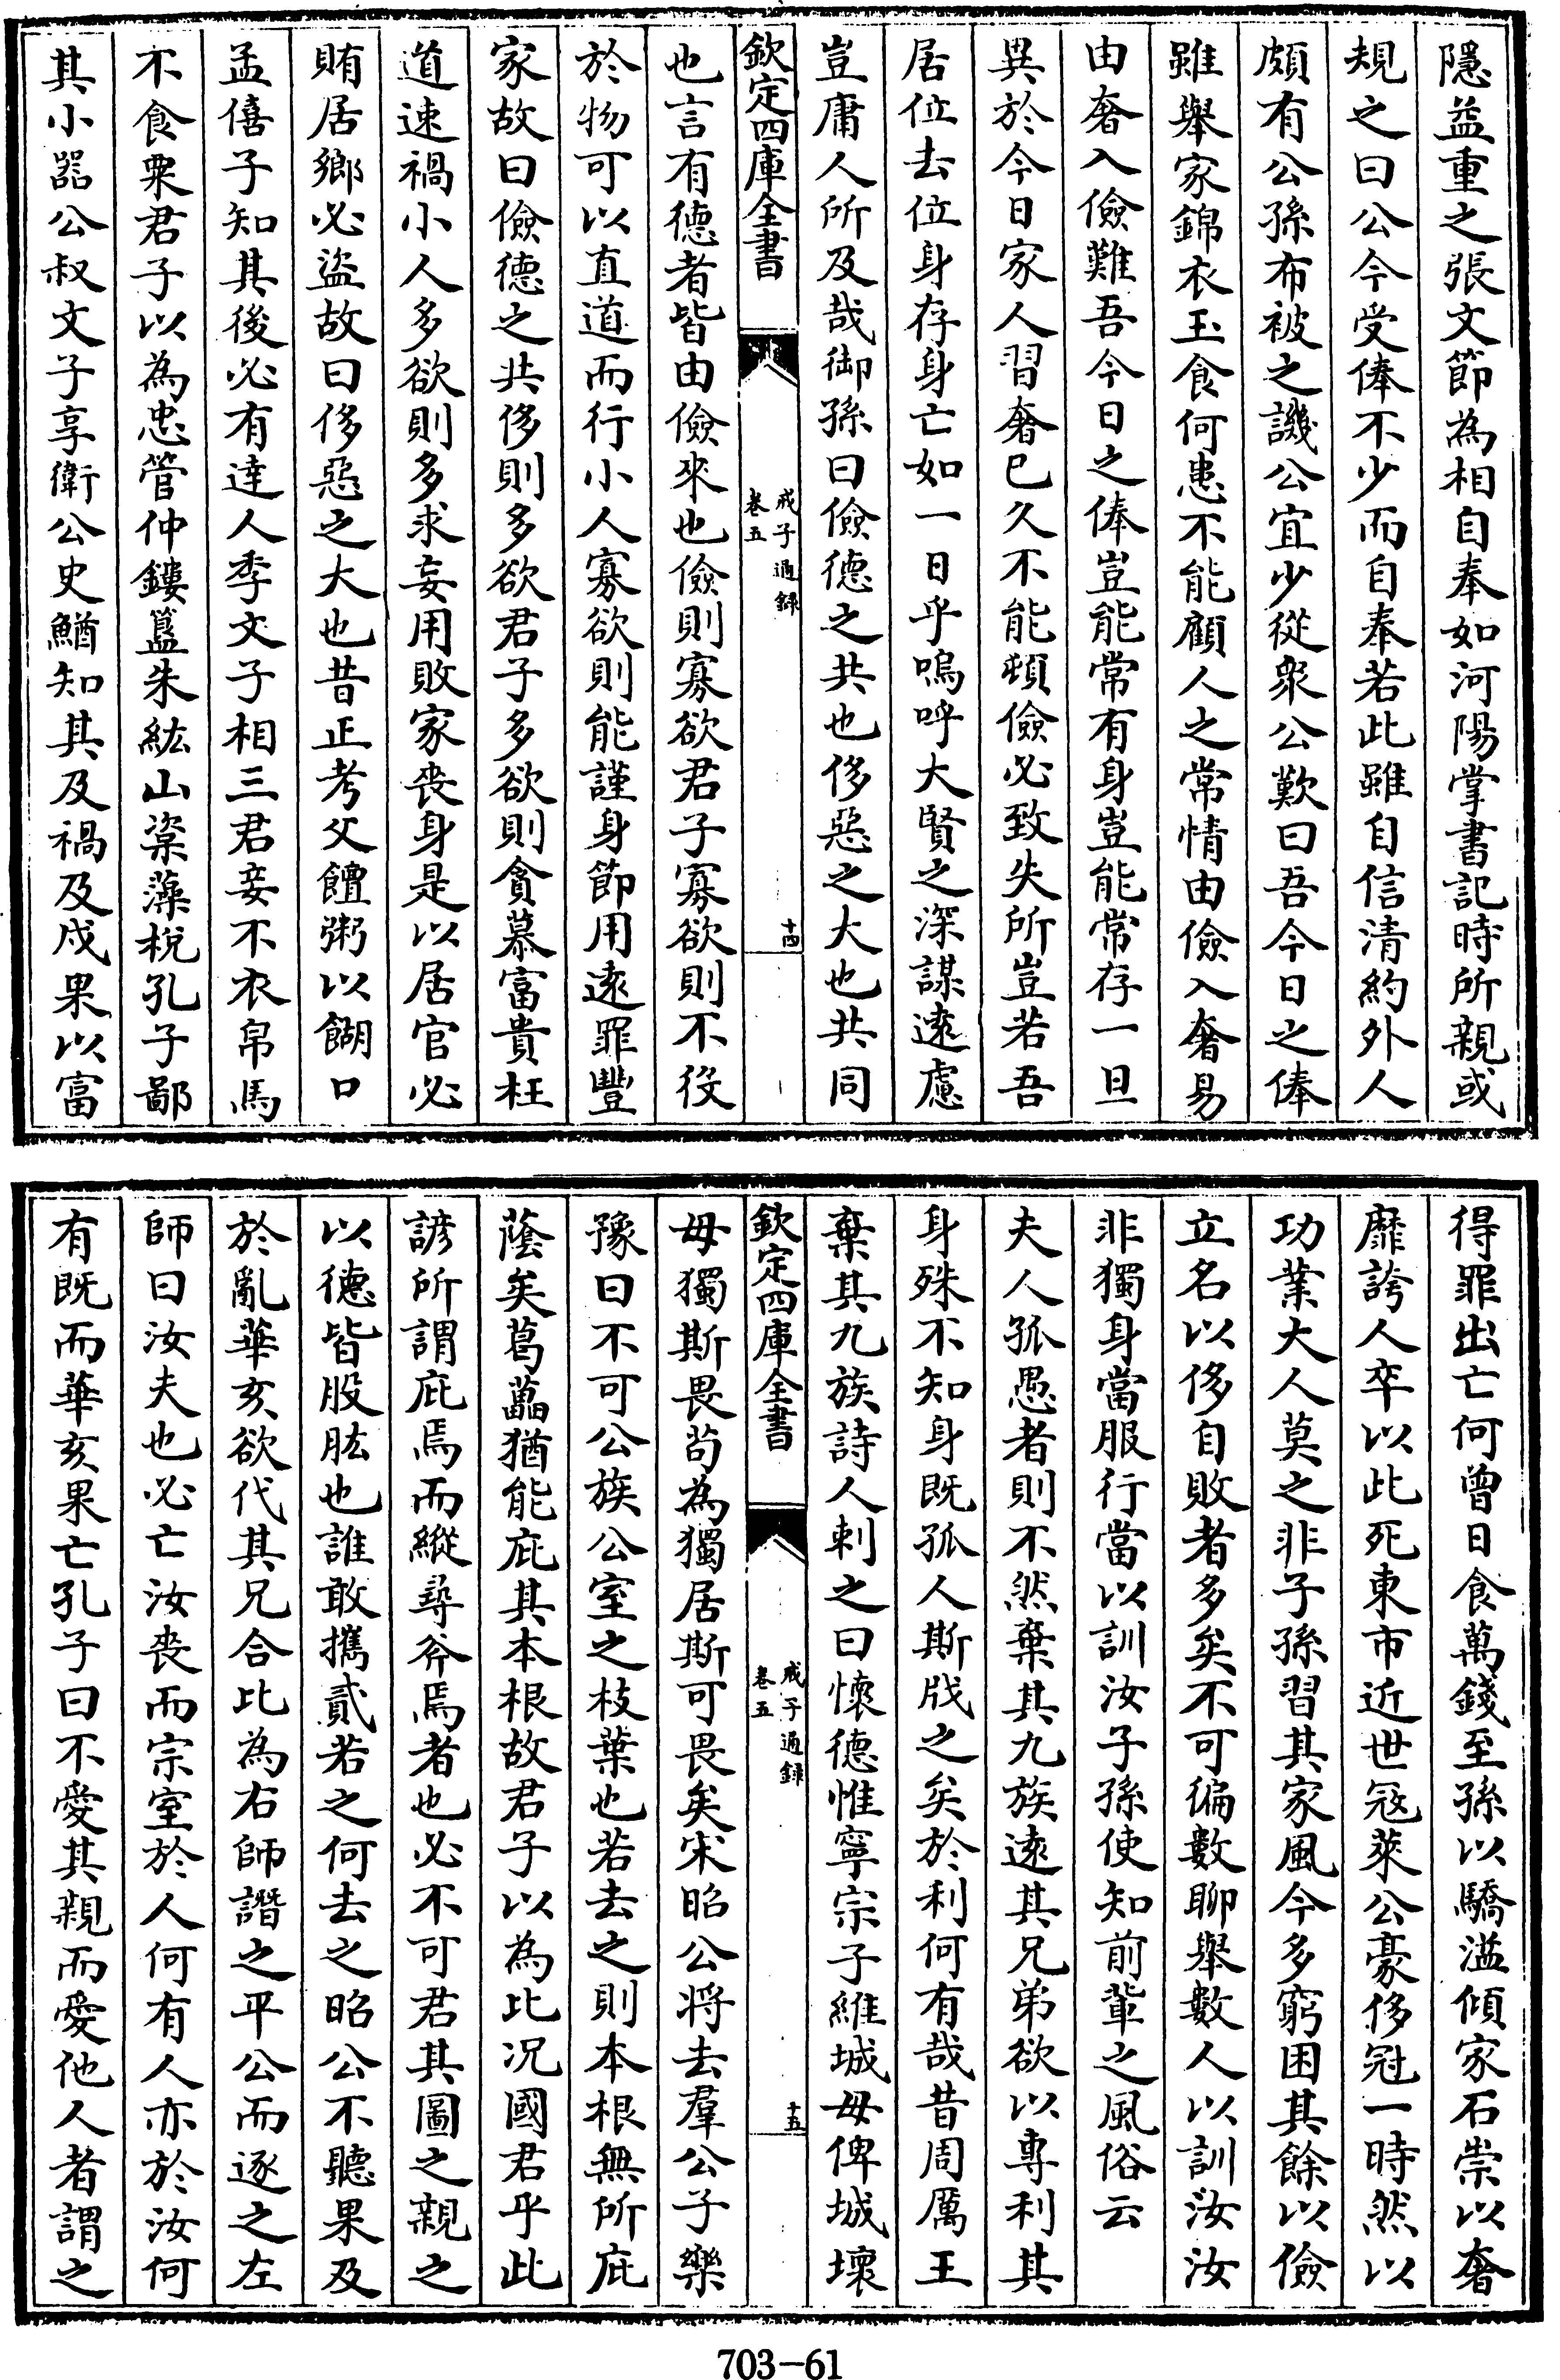 隱益重之張文節為相自奉如河陽掌書記時所親或
規之曰公今受俸不少而自奉若此雖自信清約外人
頗有公孫布被之譏公宜少從衆公歎曰吾今日之俸
雖舉家錦衣玉食何患不能顧人之常情由儉入奢易
由奢入儉難吾今日之俸豈能常有身豈能常存一旦
異於今日家人習奢已久不能頓儉必致失所豈若吾
居位去位身存身亡如一日乎嗚呼大賢之深謀遠慮
豈庸人所及哉御孫曰儉德之共也侈惡之大也共同
欽定四庫全書
戒子通録
卷五
十四
也言有德者皆由儉來也儉則寡欲君子寡欲則不役
於物可以直道而行小人寡欲則能謹身節用遠罪豐
家故曰儉德之共侈則多欲君子多欲則貪慕富貴枉
道速禍小人多欲則多求妄用敗家喪身是以居官必
賄居鄉必盜故曰侈惡之大也昔正考父饘粥以餬口
孟僖子知其後必有達人季文子相三君妾不衣帛馬
不食粟君子以為忠管仲鏤簋朱紘山楶藻梲孔子鄙
其小器公叔文子享衛公史鰌知其及禍及戌果以富
得罪出亡何曾日食萬錢至孫以驕溢傾家石崇以奢
靡誇人卒以此死東市近世冦萊公豪侈冠一時然以
功業大人莫之非子孫習其家風今多窮困其餘以儉
立名以侈自敗者多矣不可徧數聊舉數人以訓汝汝
非獨身當服行當以訓汝子孫使知前輩之風俗云
夫人孤愚者則不然棄其九族遠其兄弟欲以專利其
身殊不知身既孤人斯戕之矣於利何有哉昔周厲王
棄其九族詩人刺之曰懷德惟寧宗子維城毋俾城壞
欽定四庫全書
戒子通録
卷五
十五
毋獨斯畏苟為獨居斯可畏矣宋昭公將去羣公子樂
豫曰不可公族公室之枝葉也若去之則本根無所庇
蔭矣葛藟猶能庇其本根故君子以為比况國君乎此
諺所謂庇焉而縱尋斧焉者也必不可君其圖之親之
以德皆股肱也誰敢攜貳若之何去之昭公不聽果及
於亂華亥欲代其兄合比為右師譖之平公而逐之左
師曰汝夫也必亡汝喪而宗室於人何有人亦於汝何
有既而華亥果亡孔子曰不愛其親而愛他人者謂之
703-61